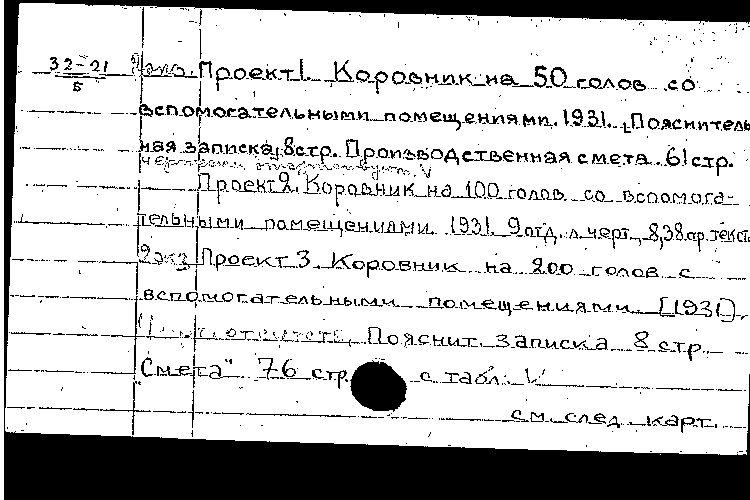 32-21 2 экз. Проект 1. Коровник на 50 голов со
5
вспомогательными помещениями. 1931. Пояснитель
ная записка, 8 стр. Производственная смета. 61 стр.
чертежи отсутствуют. V
Проект 2. Коровник на 100 голов со вспомога-
тельными помещениями. 1931. 9 отд. л. черт., 8, 38 стр. текст.
2 экз Проект 3. Коровник на 200 голов с
вспомогательными помещениями. [1931].
отсутств. Пояснит. записка 8 стр.
"Смета" 76 стр. с табл. V
см. след. карт.